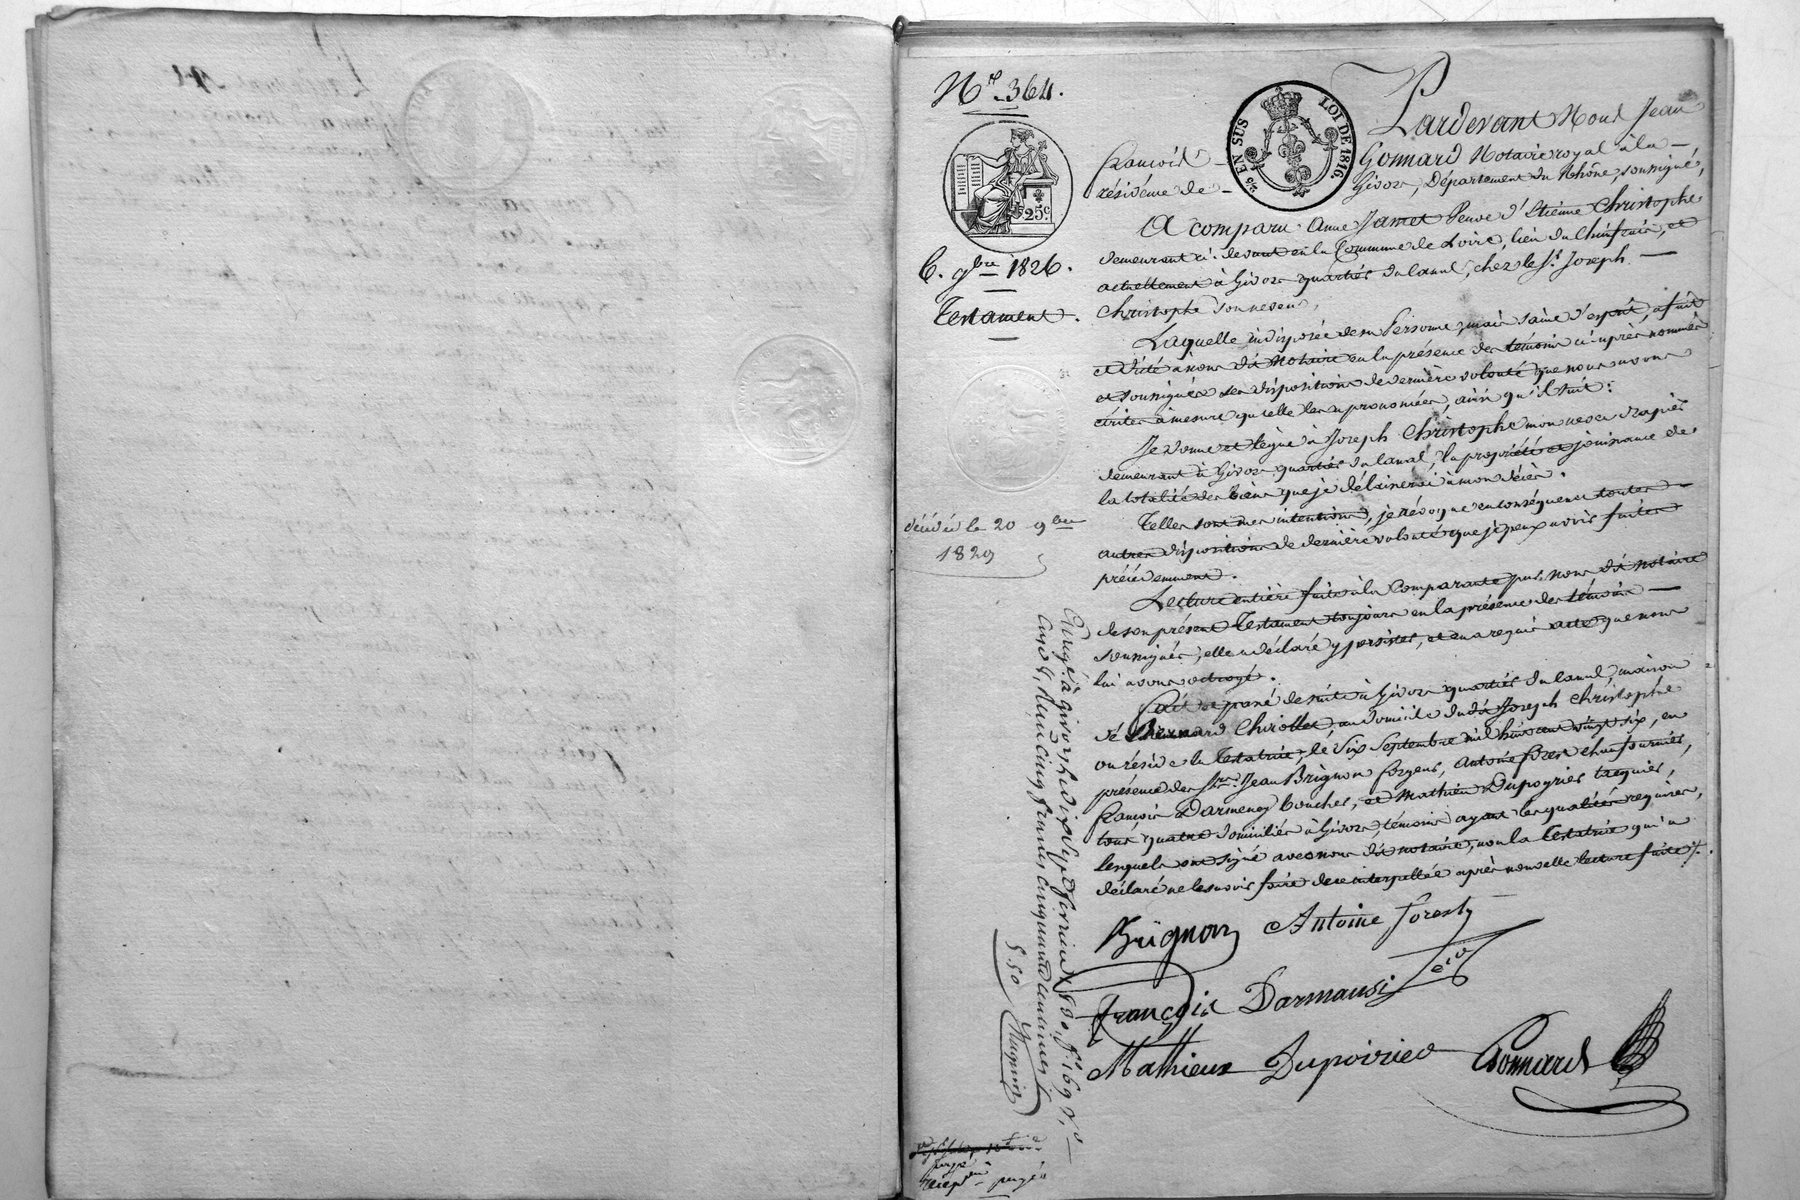 N.º 364.
EN SUS
LOI DE 1816.
25c
6. 7bre 1826.
Testament.
décédée le 20 9bre
1829
Pardevant Nous Jean
François Gonnard Notaire royal à la
résidence de Givors, Département du Rhône, soussigné,
A comparu Anne Jamet Veuve d'Etienne Christophe
demeurant ci-devant en la Commune de Loire, lieu du, et
actuellement à Givors quartier du Canal, chez le Sr. Joseph
Christophe son neveu,
Laquelle indisposée de sa Personne, mais saine d'esprit, a fait
et dicté à nous dit Notaire en la présence des témoins ci-après nommés
et soussignés ses dispositions de dernière volonté que nous avons
écrites à mesure qu'elle les a prononcées, ainsi qu'il suit:
Je donne et lègue à Joseph Christophe mon neveu
demeurant à Givors quartier du Canal, la propriété et jouissance de
la totalité des biens que je délaisserai à mon décès.
Telles sont mes intentions, je révoque en conséquence toutes
autres dispositions de dernière volonté que je peux avoir faites
précédemment.
Lecture entière faite à la Comparante par nous dit notaire
de son présent Testament toujours en la présence des témoins
soussignés, elle a déclaré y persister, et en a requis acte que nous
lui avons octroyé.
Fait et passé de suite à Givors quartier du Canal, maison
de Bernard Chirollet, au domicile dudit Joseph Christophe
où réside la Testatrice, le Six Septembre mil huit cent vingt six, en
présence des Srs. Jean Brignon forgeur, Antoine forest chaufournier,
François Darmency boucher, et Mathieu Dupoyrier,
tous quatre domiciliés à Givors, témoins ayant les qualités requises,
lesquels ont signé avec nous dit notaire, non la Testatrice qui a
déclaré ne le savoir faire de ce interpellée après nouvelle lecture faite /.
Brignon Antoine Forest
François Darmansi
Mathieux Dupoirier Gonnard
à Givors le dix Sept. fo. 169 Vo.
cinq francs cinquante centimes
5.50